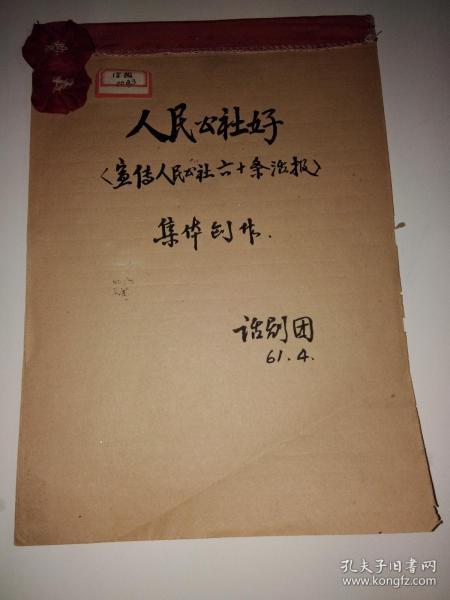 活报
0043
人民公社好
〈宣传人民公社六十条活报〉
集体创作.
话剧团
61.4.
孔夫子旧书网
www.kongfz.com